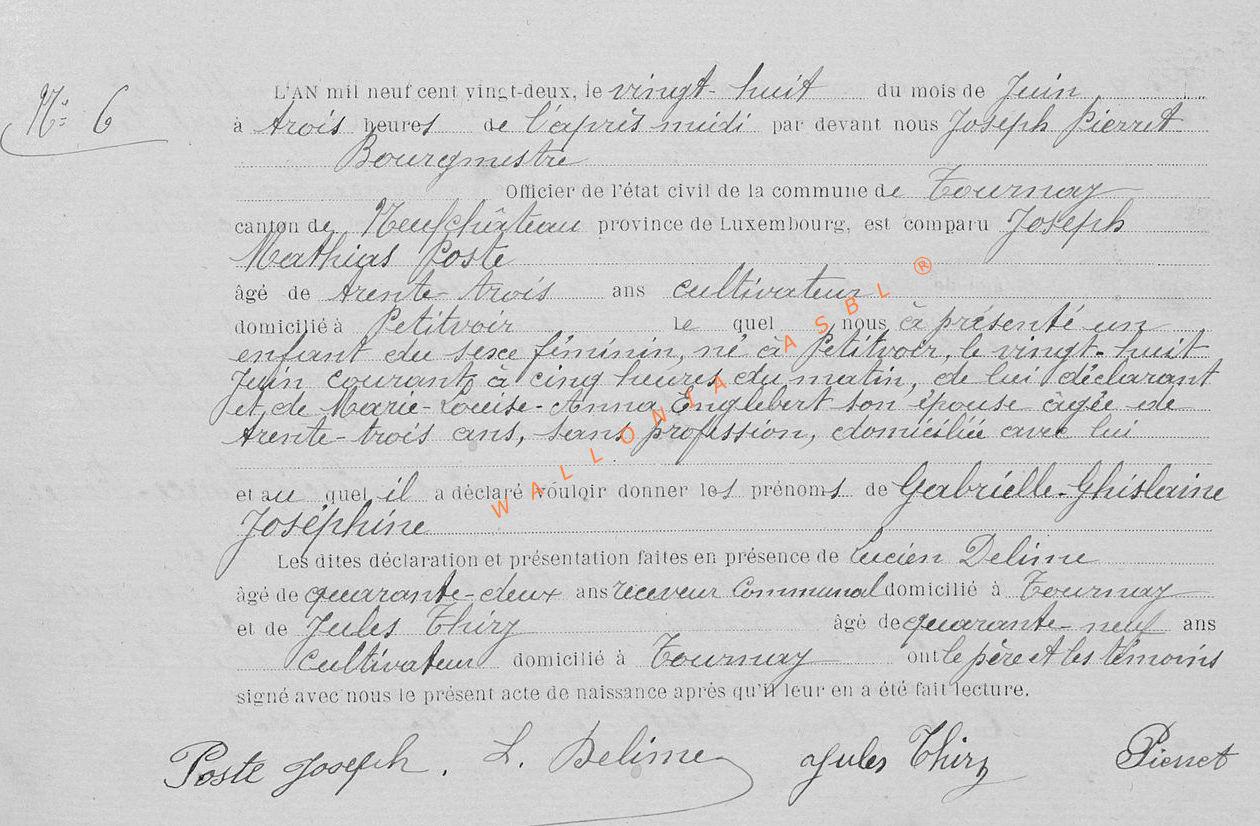 N° 6
L'AN mil neuf cent vingt-deux, le vingt-huit du mois de Juin
à trois heures de l'après midi par devant nous Joseph Pierret
Bourgmestre
Officier de l'état civil de la commune de Tournay
canton de Neufchâteau province de Luxembourg, est comparu Joseph
Mathias Poste
âgé de trente-trois ans cultivateur
domicilié à Petitvoir le quel nous à présenté un
enfant du sexe féminin, né à Petitvoir, le vingt-huit
Juin courant, à cinq heures du matin, de lui déclarant
et de Marie-Louise-Anna Englebert son épouse âgée de
trente-trois ans, sans profession, domiciliée avec lui
et au quel il a déclaré vouloir donner les prénoms de Gabriélle-Ghislaine
Joséphine
Les dites déclaration et présentation faites en présence de Lucien Delime
âgé de quarante-deux ans receveur Communal domicilié à Tournay
et de Jules Thiry âgé de quarante-neuf ans
cultivateur domicilié à Tournay ont le père et les témoins
signé avec nous le présent acte de naissance après qu'il leur en a été fait lecture.
Poste Joseph. L. Delime Jules Thiry Pierret
WALLONIA ASBL ®